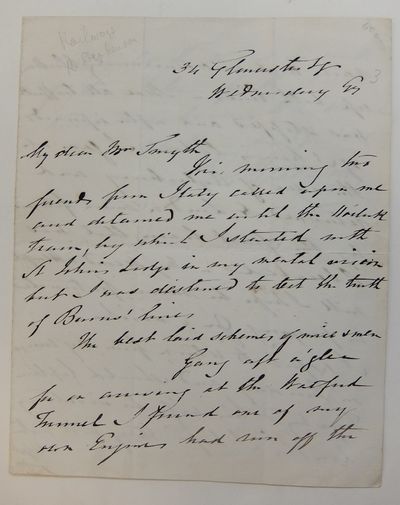 Railways
R Stephenson
3
34 Gloucester Sq
Wednesday Eg
My dear Mrs Smyth
This morning two
friends from Italy called upon me
and detained me until the
train, by which I started with
St John's Lodge in my mental vision
but I was destined to test the truth
of Burns' lines
The best laid schemes of mice & men
Gang aft a'glee
for on arriving at the Watford
Tunnel I found one of my
own Engines had run off the